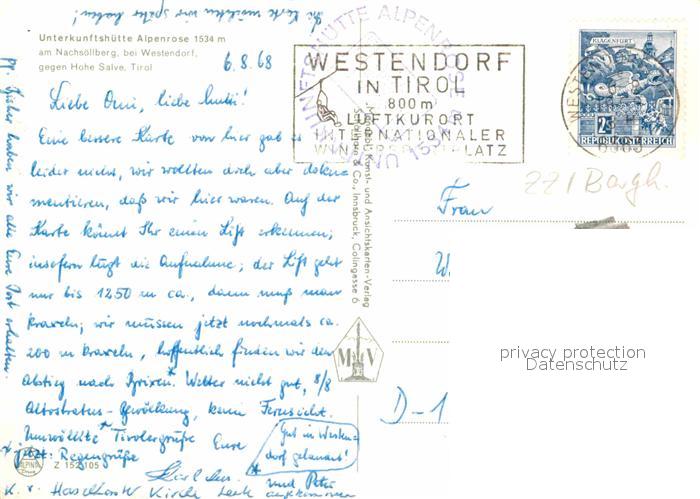 Die Karte möchten wir später haben!
Unterkunftshütte Alpenrose 1534 m
am Nachsöllberg, bei Westendorf,
gegen Hohe Salve, Tirol
6.8.68
Liebe Omi, liebe Mutti!
Eine bessere Karte von hier gab es
leider nicht, wir wollten doch aber doku-
mentieren, daß wir hier waren. Auf der
Karte könnt Ihr einen Lift erkennen;
insofern lügt die Aufnahme; der Lift geht
nur bis 1250 m ca., dann muß man
kraxeln; wir müssen jetzt nochmals ca.
200 m kraxeln, hoffentlich finden wir den
Abstieg nach Brixen. Wetter nicht gut, 8/8
Altostratus-Bewölkung, keine Fernsicht.
Umwölkte Tirolergrüße Eure
* jetzt: Regengrüße
und Peter
Gut in Westen-
dorf gelandet!
ALPINE
Z 152 105
Kirche
PP. Bisher haben wir alle Eure Post erhalten.
Kunst- und Ansichtskarten-Verlag
& Co., Innsbruck, Colingasse 6
M V
UNTERKUNFTSHÜTTE ALPENROSE
1534 m
WESTENDORF
IN TIROL
800 m
LUFTKURORT
INTERNATIONALER
WINTERSPORTPLATZ
KLAGENFURT
2S
REPUBLIK ÖSTERREICH
WESTENDORF
221 Bargh.
Frau
W.
D-1
privacy protection
Datenschutz